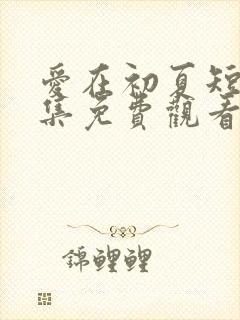 愛在初夏短
集免費觀看
錦鯉鯉